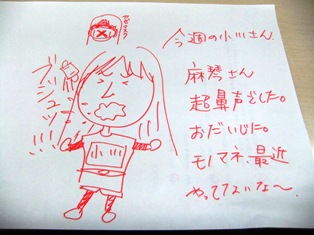 今週の小川さん
麻琴さん
超鼻声でした。
おだいじに。
モノマネ、最近
やってないな〜
ブシュッ!!!
小川